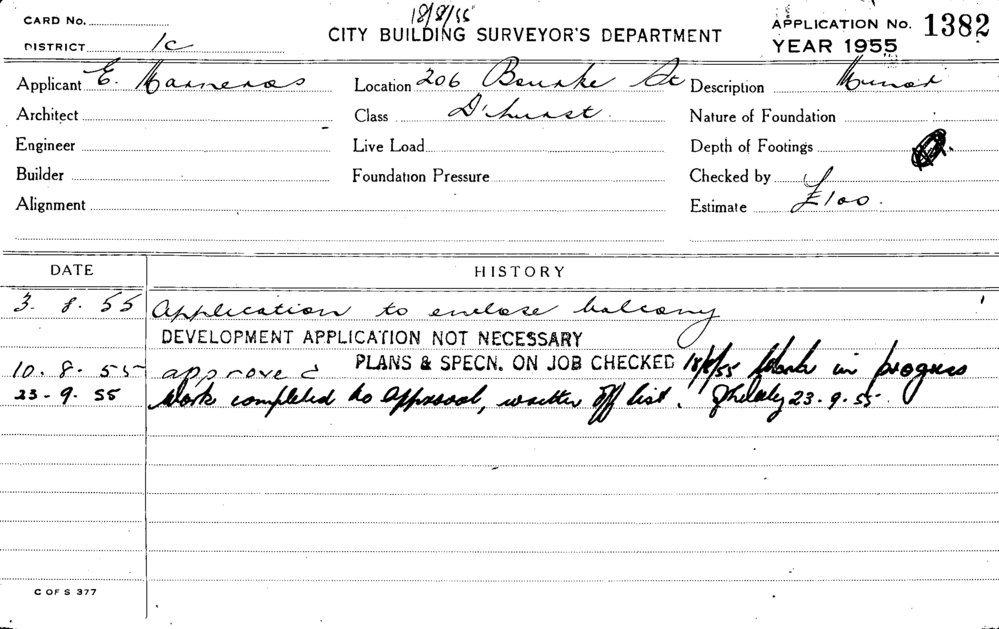 CARD No.
18/8/55
CITY BUILDING SURVEYOR'S DEPARTMENT
APPLICATION No. 1382
DISTRICT 1C
YEAR 1955
Applicant E. Marneros Location 206 Bourke St Description Minor
Architect Class D'hurst Nature of Foundation
Engineer Live Load Depth of Footings
Builder Foundation Pressure Checked by
Alignment Estimate £100.
DATE HISTORY
3. 8. 55 Application to enclose balcony
DEVELOPMENT APPLICATION NOT NECESSARY
10. 8. 55 approved PLANS & SPECN. ON JOB CHECKED 18/8/55 Work in progress
23-9-55 Work completed to approval, written off list. 23-9-55.
C OF S 377